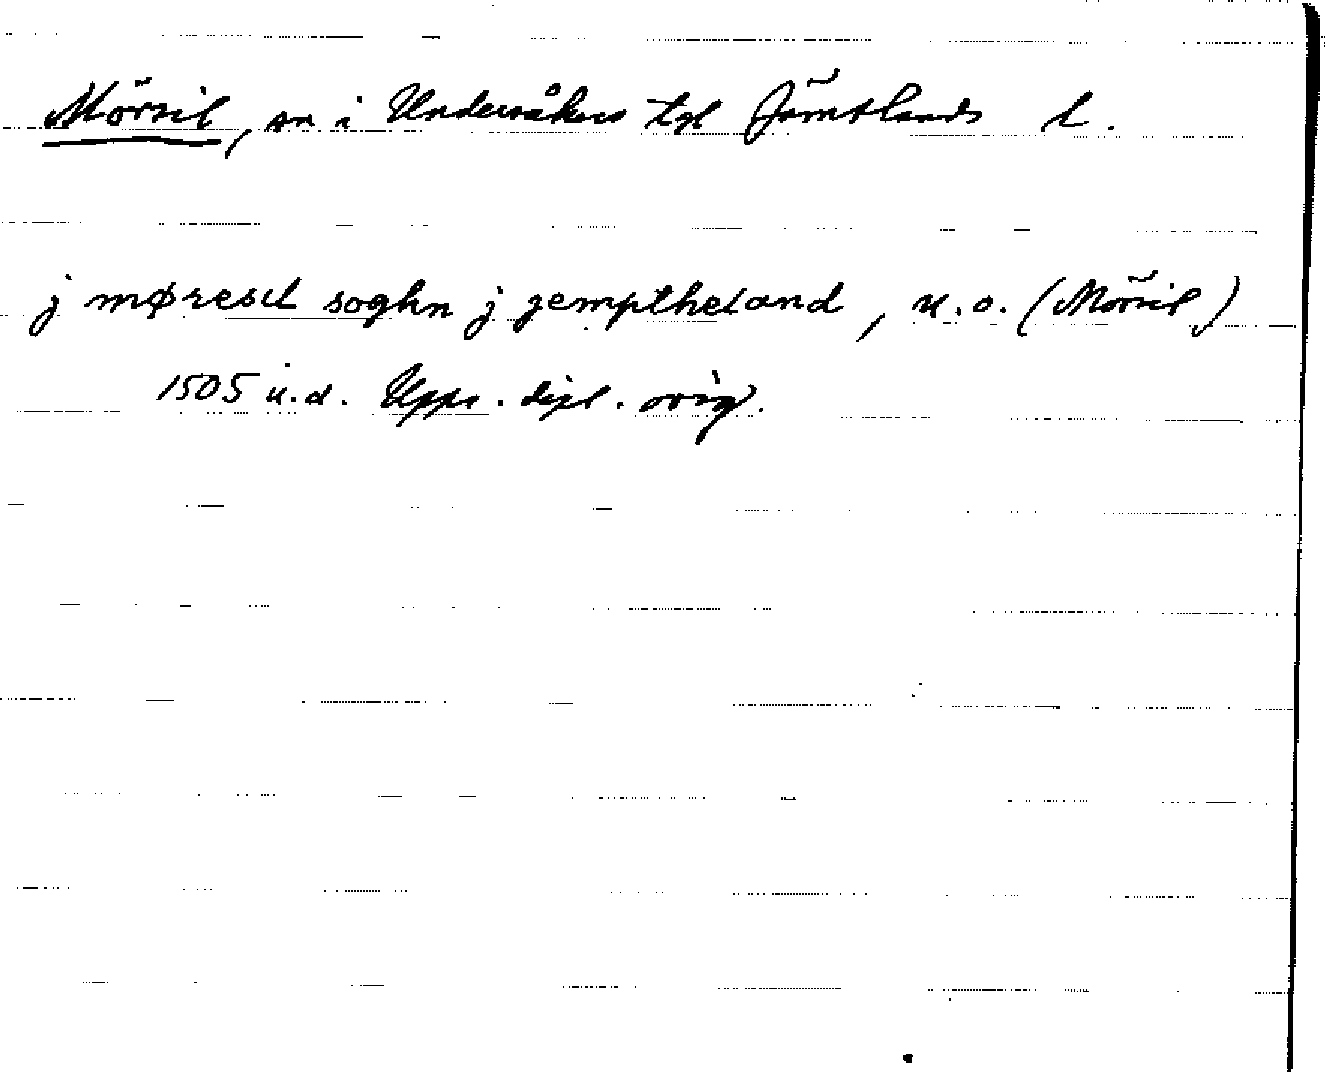 Mörsil, sn i Undersåkers tgl Jämtlands l.
j møresil soghn j jemptheland, u.o. (Mörsil)
1505 u.d. Upps. dipl. orig.